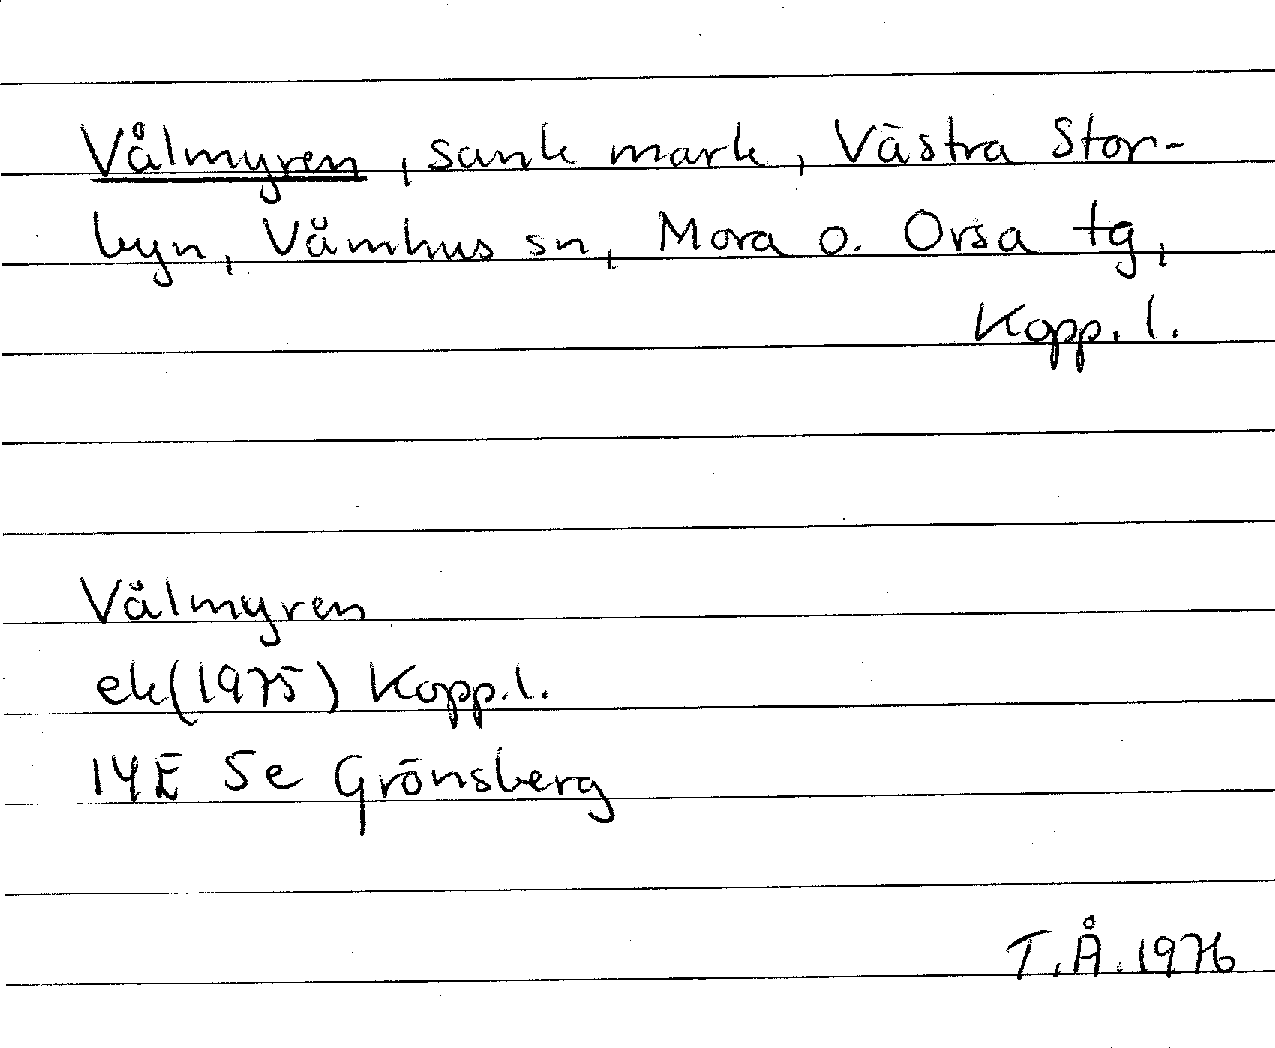 Vålmyren, sank mark, Västra Stor-
byn, Våmhus sn, Mora o. Orsa tg,
Kopp. l.
Vålmyren
ek(1975) Kopp.l.
14E 5e Grönsberg
T.Å.1976